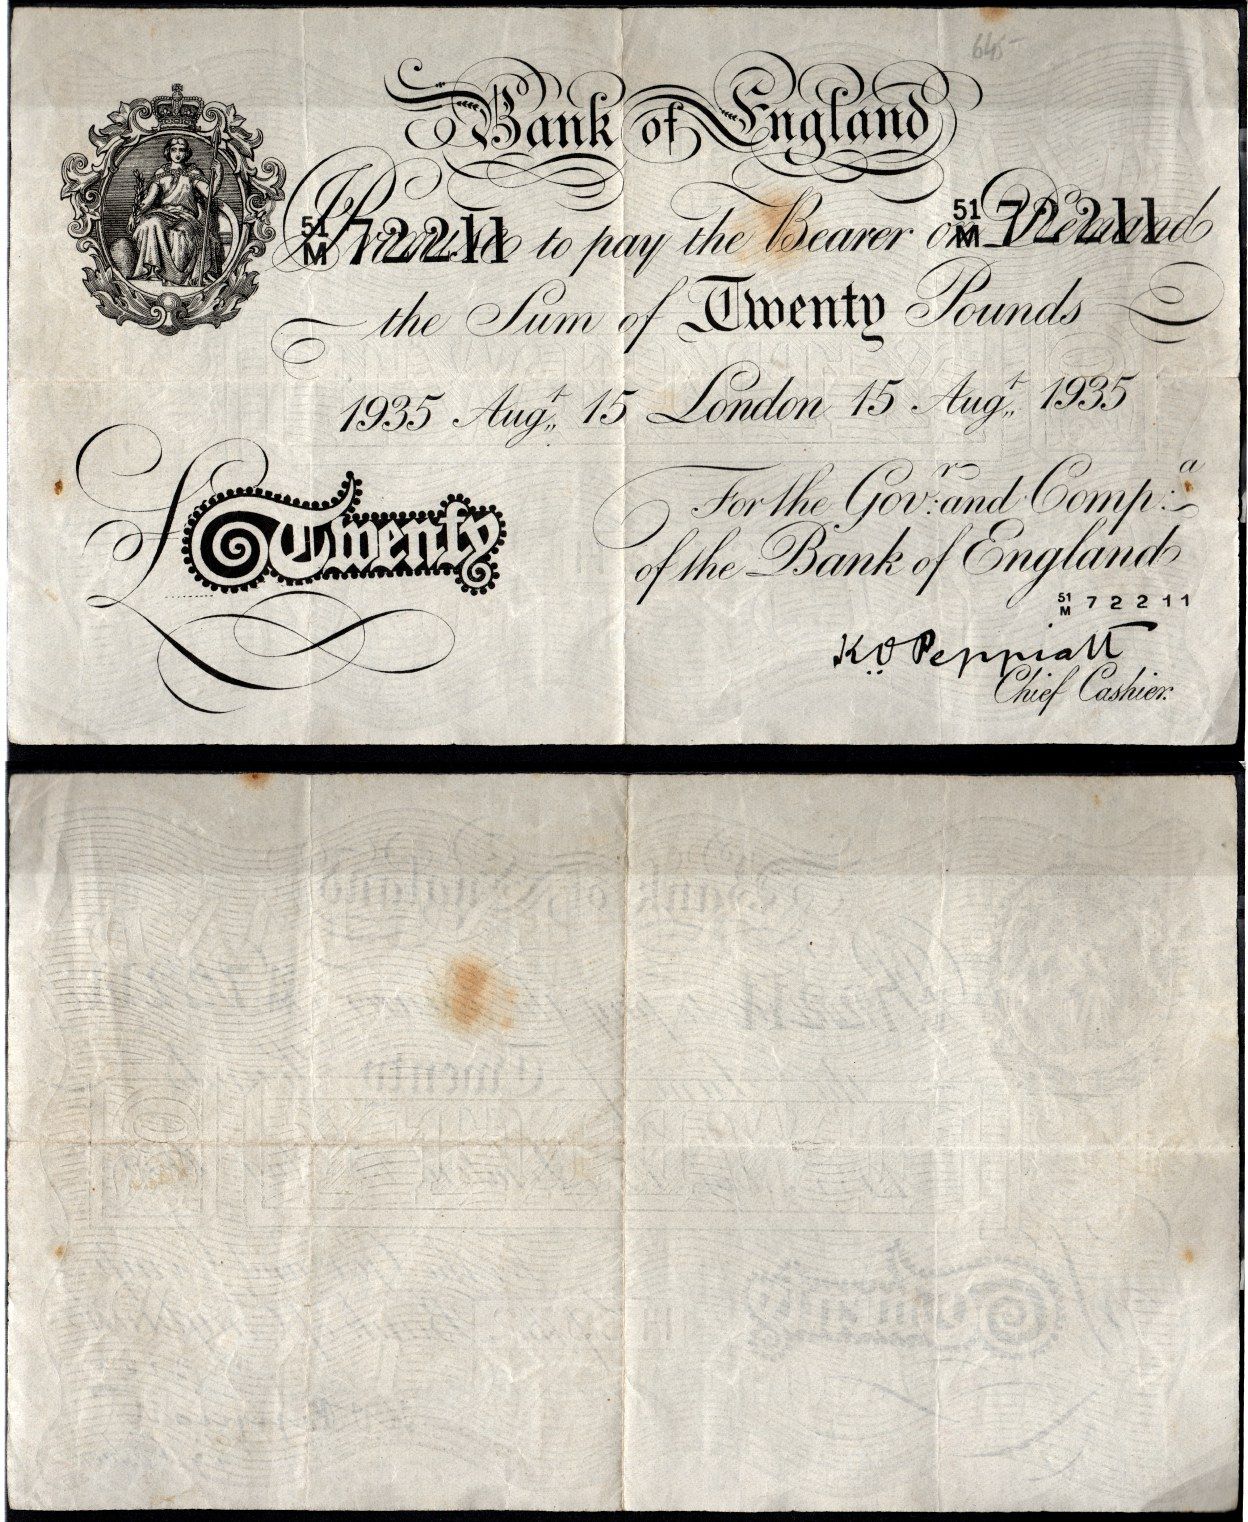 645-
Bank of England
51 M 72211 51 M 72211
I Promise to pay the Bearer on Demand
the Sum of Twenty Pounds
1935 Augt 15 London 15 Augt 1935
For the Govr: and Compa:
£ Twenty
of the Bank of England
51 M 72211
K.O. Peppiatt
Chief Cashier.